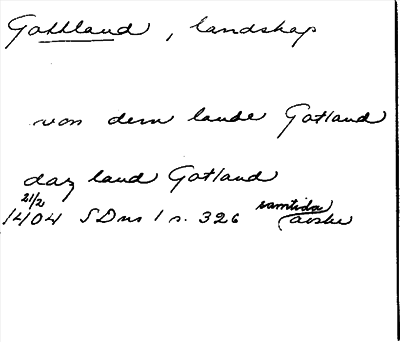 Gottland, landskap
von dem lande Gotland
daz land Gotland
21/2
1404 SDns 1 s. 326 samtida avskr